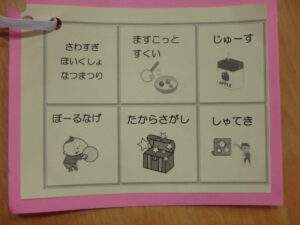 さわすぎ
ほいくしょ
なつまつり
ますこっと
すくい
じゅーす
APPLE
ぼーるなげ
たからさがし
しゃてき